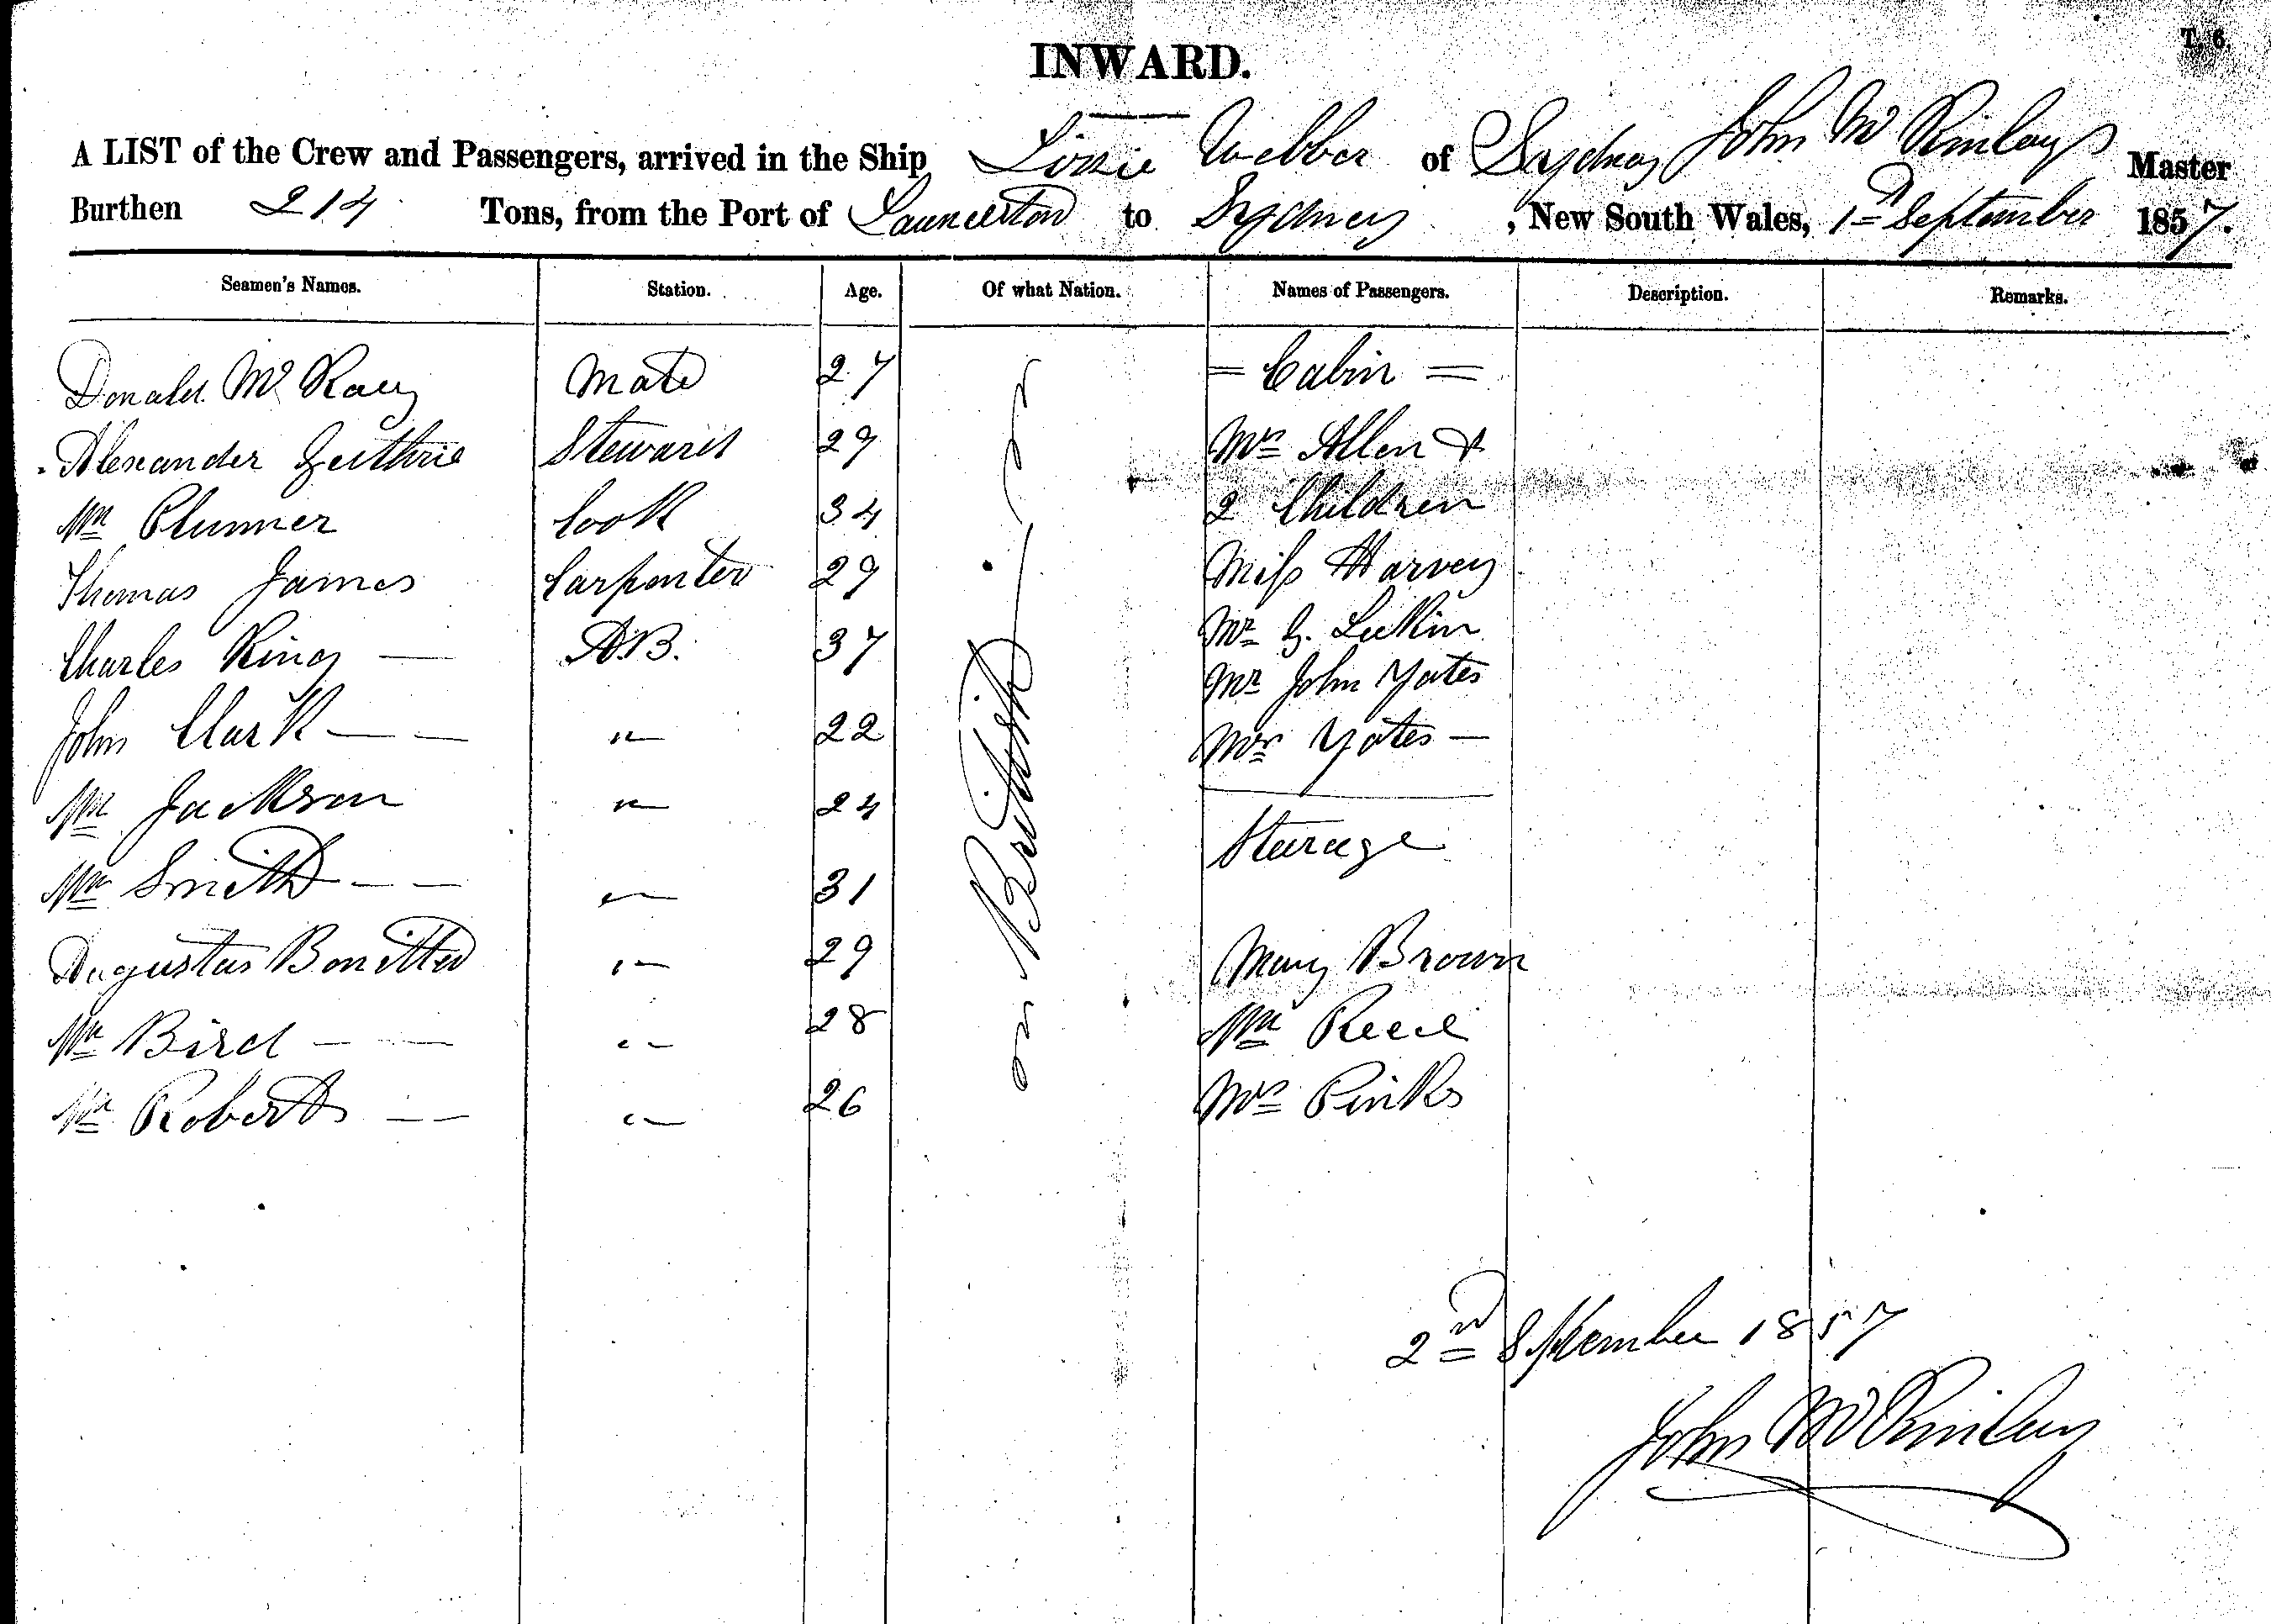 T. 6.
INWARD.
A LIST of the Crew and Passengers, arrived in the Ship Lizzie Webber of Sydney John McKinlay Master
Burthen 214 Tons, from the Port of Launceston to Sydney, New South Wales, 1st September 1857.
Seamen's Names. Station. Age. Of what Nation. Names of Passengers. Description. Remarks.
Donald McKay Mate 27 = Cabin =
Alexander Guthrie Steward 29 Mrs Allen &
Wm Plummer Cook 34 2 Children
Thomas James Carpenter 29 Miss Harvey
Charles King — A.B. 37 Mr G. Luckin
John Clark — — " 22 Mr John Yates
Wm Jackson " 24 Mrs Yates —
Wm Smith — — " 31 Sturage
Augustus " 29 Mary Brown
Wm Bird — — " 28 Wm Reece
Wm Roberts — — " 26 Mrs Pinks
British
2nd September 1857
John McKinlay